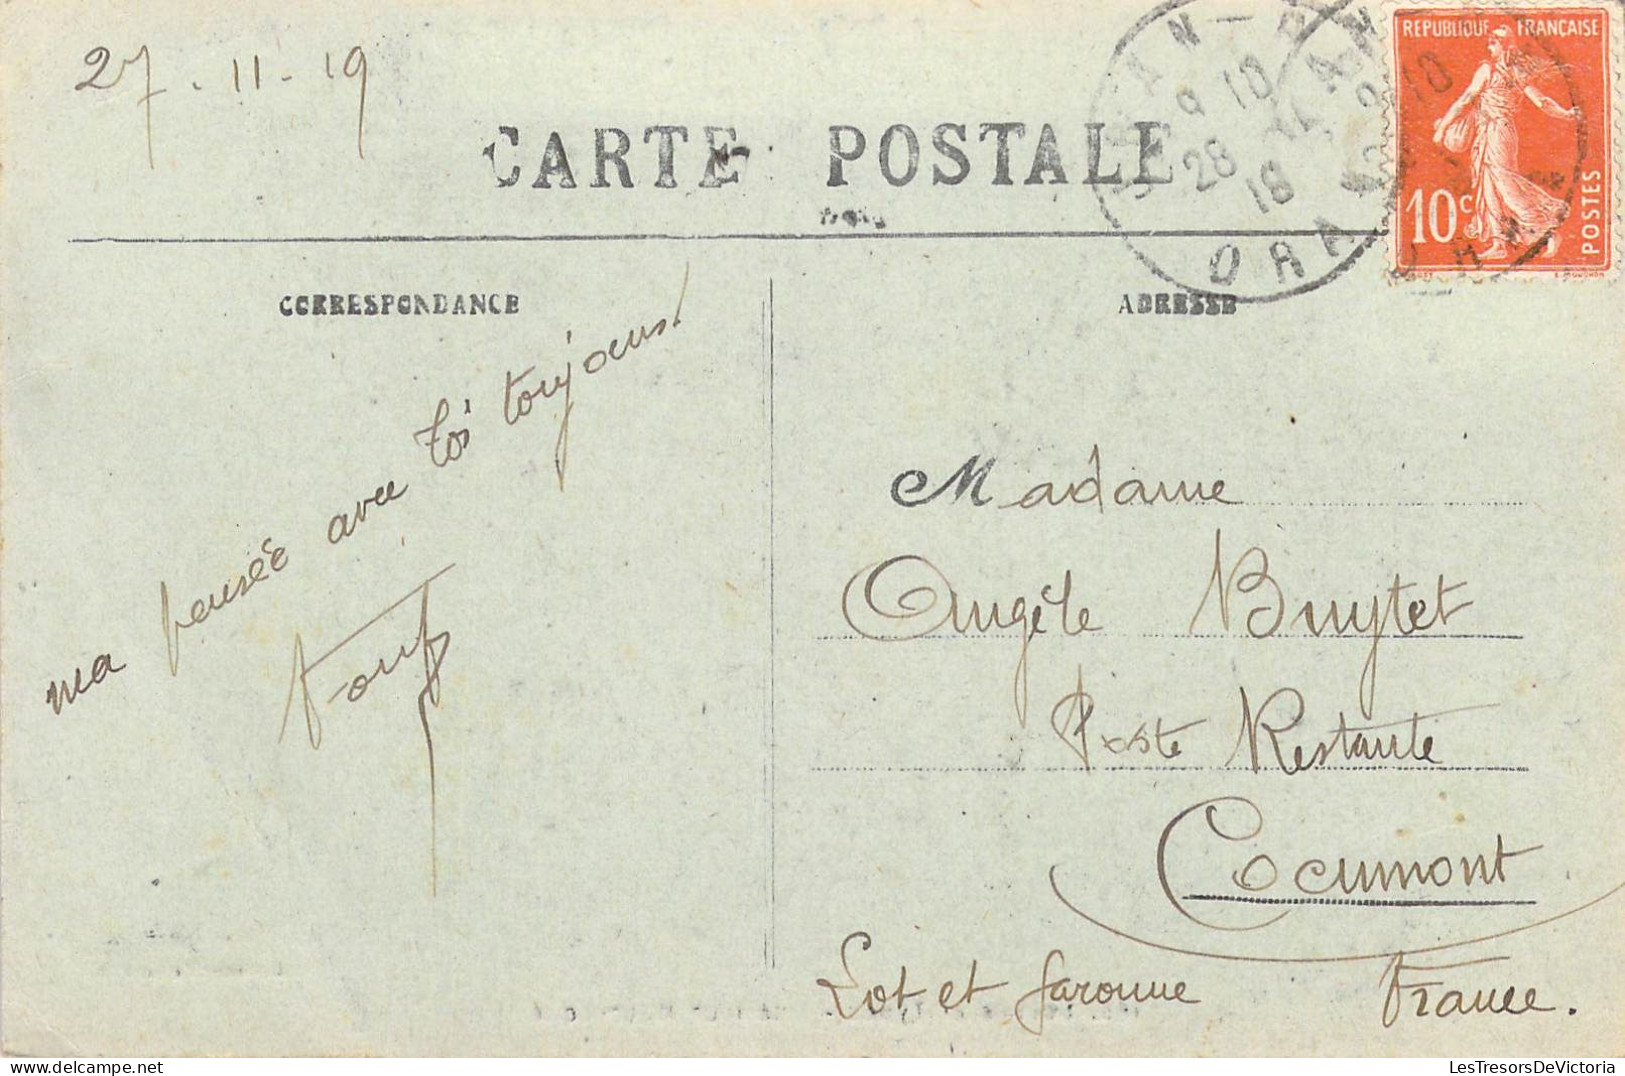 27.11-19
CARTE POSTALE
REPUBLIQUE FRANÇAISE
10c
POSTES
9 10
28
18
ORAN
CORRESPONDANCE
ADRESSE
ma pensée avec toi toujours!
Madame
Angèle Buytet
Poste Restante
Cocumont
Lot et garonne France.
LesTresorsDeVictoria